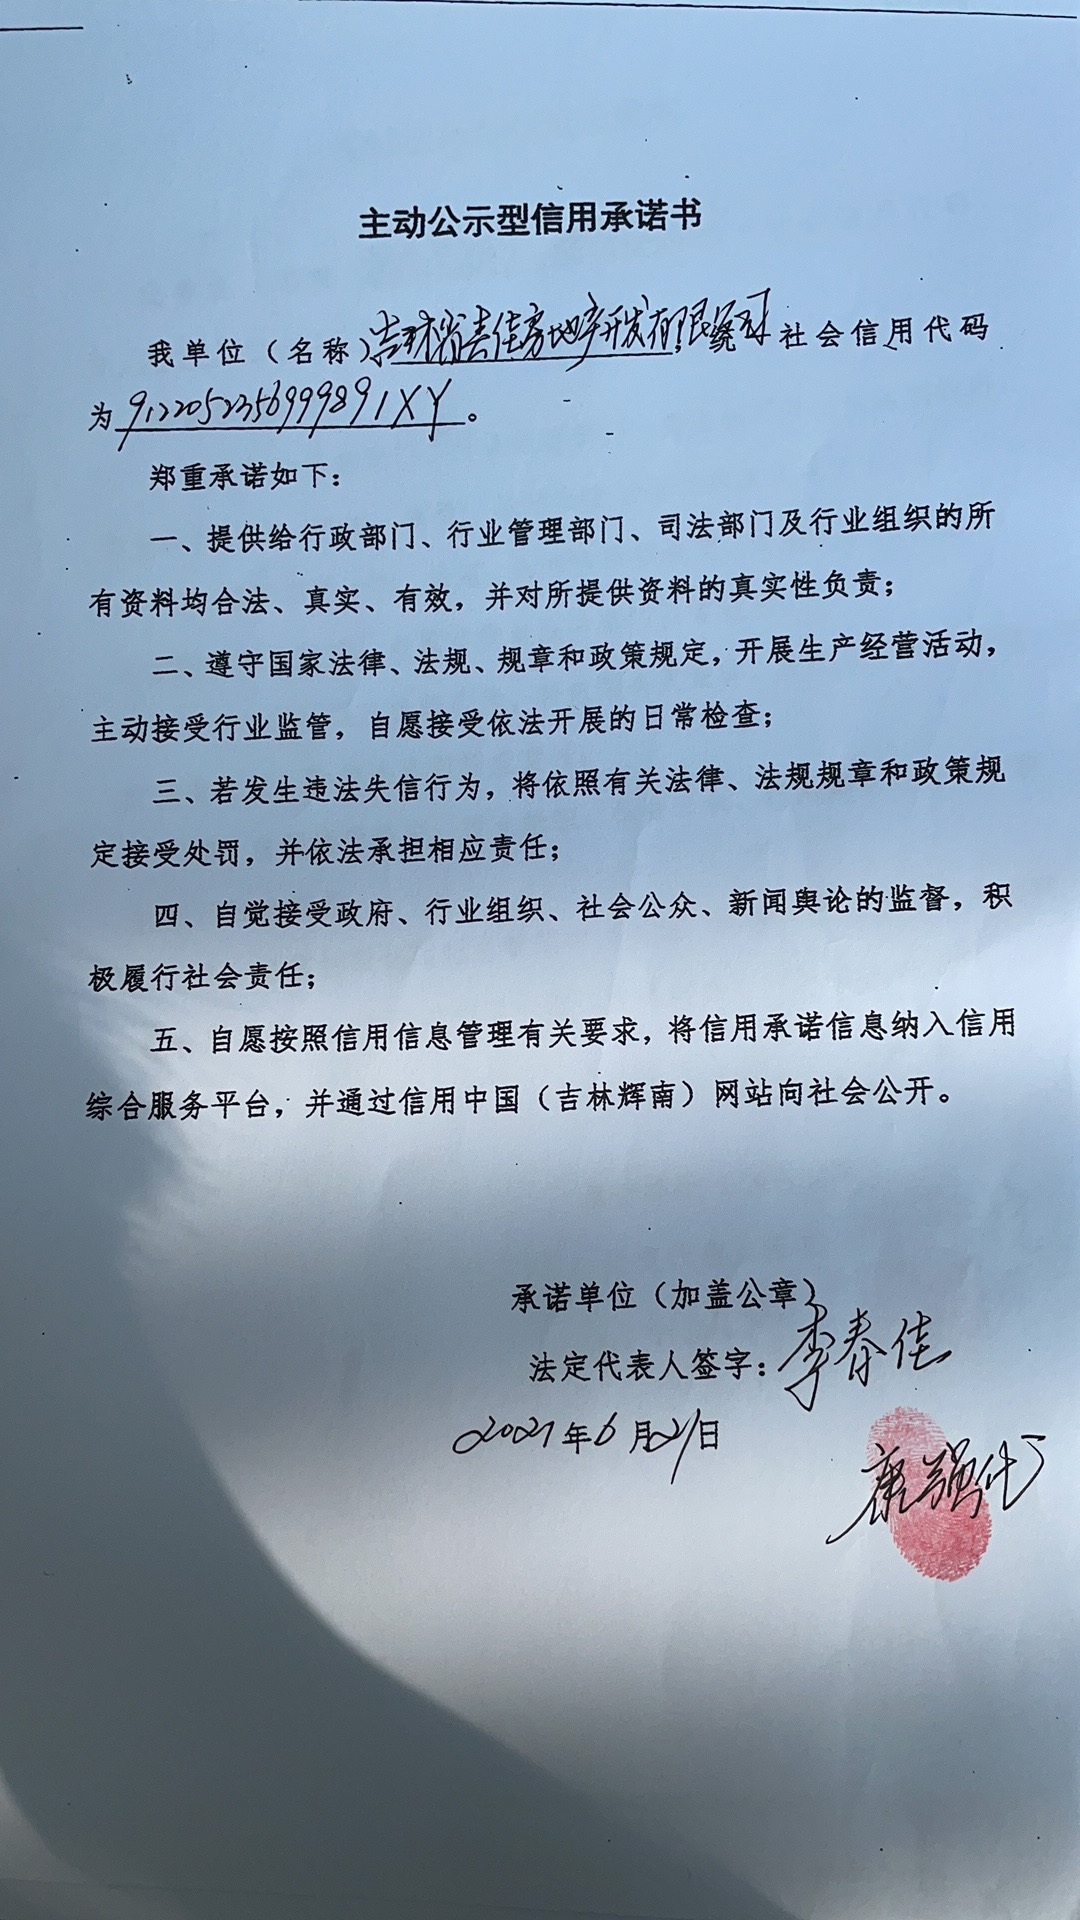 主动公示型信用承诺书
我单位（名称）吉林省春佳房地产开发有限公司社会信用代码
为9122052356999891XY。
郑重承诺如下：
一、提供给行政部门、行业管理部门、司法部门及行业组织的所
有资料均合法、真实、有效，并对所提供资料的真实性负责；
二、遵守国家法律、法规、规章和政策规定，开展生产经营活动，
主动接受行业监管，自愿接受依法开展的日常检查；
三、若发生违法失信行为，将依照有关法律、法规规章和政策规
定接受处罚，并依法承担相应责任；
四、自觉接受政府、行业组织、社会公众、新闻舆论的监督，积
极履行社会责任；
五、自愿按照信用信息管理有关要求，将信用承诺信息纳入信用
综合服务平台，并通过信用中国（吉林辉南）网站向社会公开。
承诺单位（加盖公章）
法定代表人签字：李春佳
2021年6月21日
康强